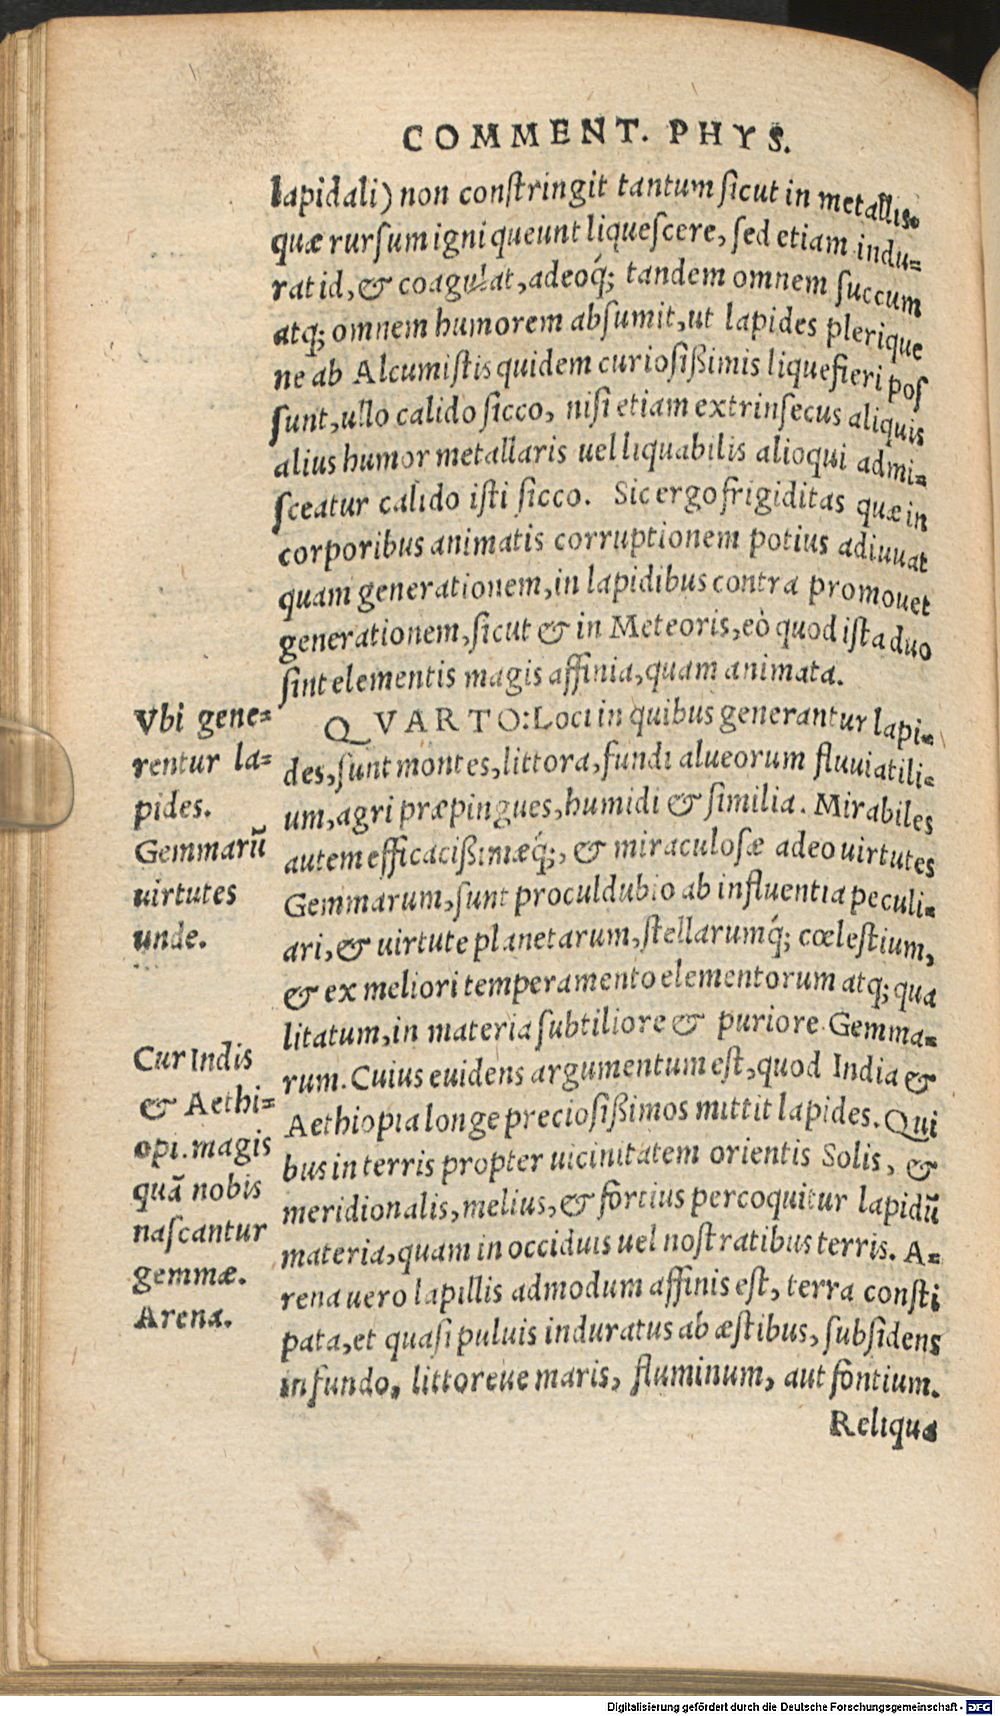 COMMENT. PHYS.
lapidali) non constringit tantum sicut in metallis.
quæ rursum igni queunt liquescere, sed etiam indu=
rat id, & coagulat, adeoq́; tandem omnem succum
atq; omnem humorem absumit, ut lapides plerique
ne ab Alcumistis quidem curiosißimis liquefieri pos
sunt, ullo calido sicco, nisi etiam extrinsecus aliquis
alius humor metallaris uel liquabilis alioqui admi=
sceatur calido isti sicco. Sic ergo frigiditas quæ in
corporibus animatis corruptionem potius adiuuat
quam generationem, in lapidibus contra promouet
generationem, sicut & in Meteoris, eò quod ista duo
sint elementis magis affinia, quam animata.
QVARTO: Loci in quibus generantur lapi=
des, sunt montes, littora, fundi alueorum fluuiatili=
um, agri præpingues, humidi & similia. Mirabiles
autem efficacißimæq́;, & miraculosæ adeo uirtutes
Gemmarum, sunt proculdubio ab influentia peculi=
ari, & uirtute planetarum, stellarumq́; cœlestium,
& ex meliori temperamento elementorum atq; qua
litatum, in materia subtiliore & puriore Gemma=
rum. Cuius euidens argumentum est, quod India &
Aethiopia longe preciosißimos mittit lapides. Qui
bus in terris propter uicinitatem orientis Solis, &
meridionalis, melius, & fortius percoquitur lapidũ
materia, quam in occiduis uel nostratibus terris. A=
rena uero lapillis admodum affinis est, terra consti
pata, et quasi puluis induratus ab æstibus, subsidens
in fundo, littoreue maris, fluminum, aut fontium.
Reliqua
Vbi gene=
rentur la=
pides.
Gemmarũ
uirtutes
unde.
Cur Indis
& Aethi=
opi. magis
quã nobis
nascantur
gemmæ.
Arena.
Digitalisierung gefördert durch die Deutsche Forschungsgemeinschaft - DFG